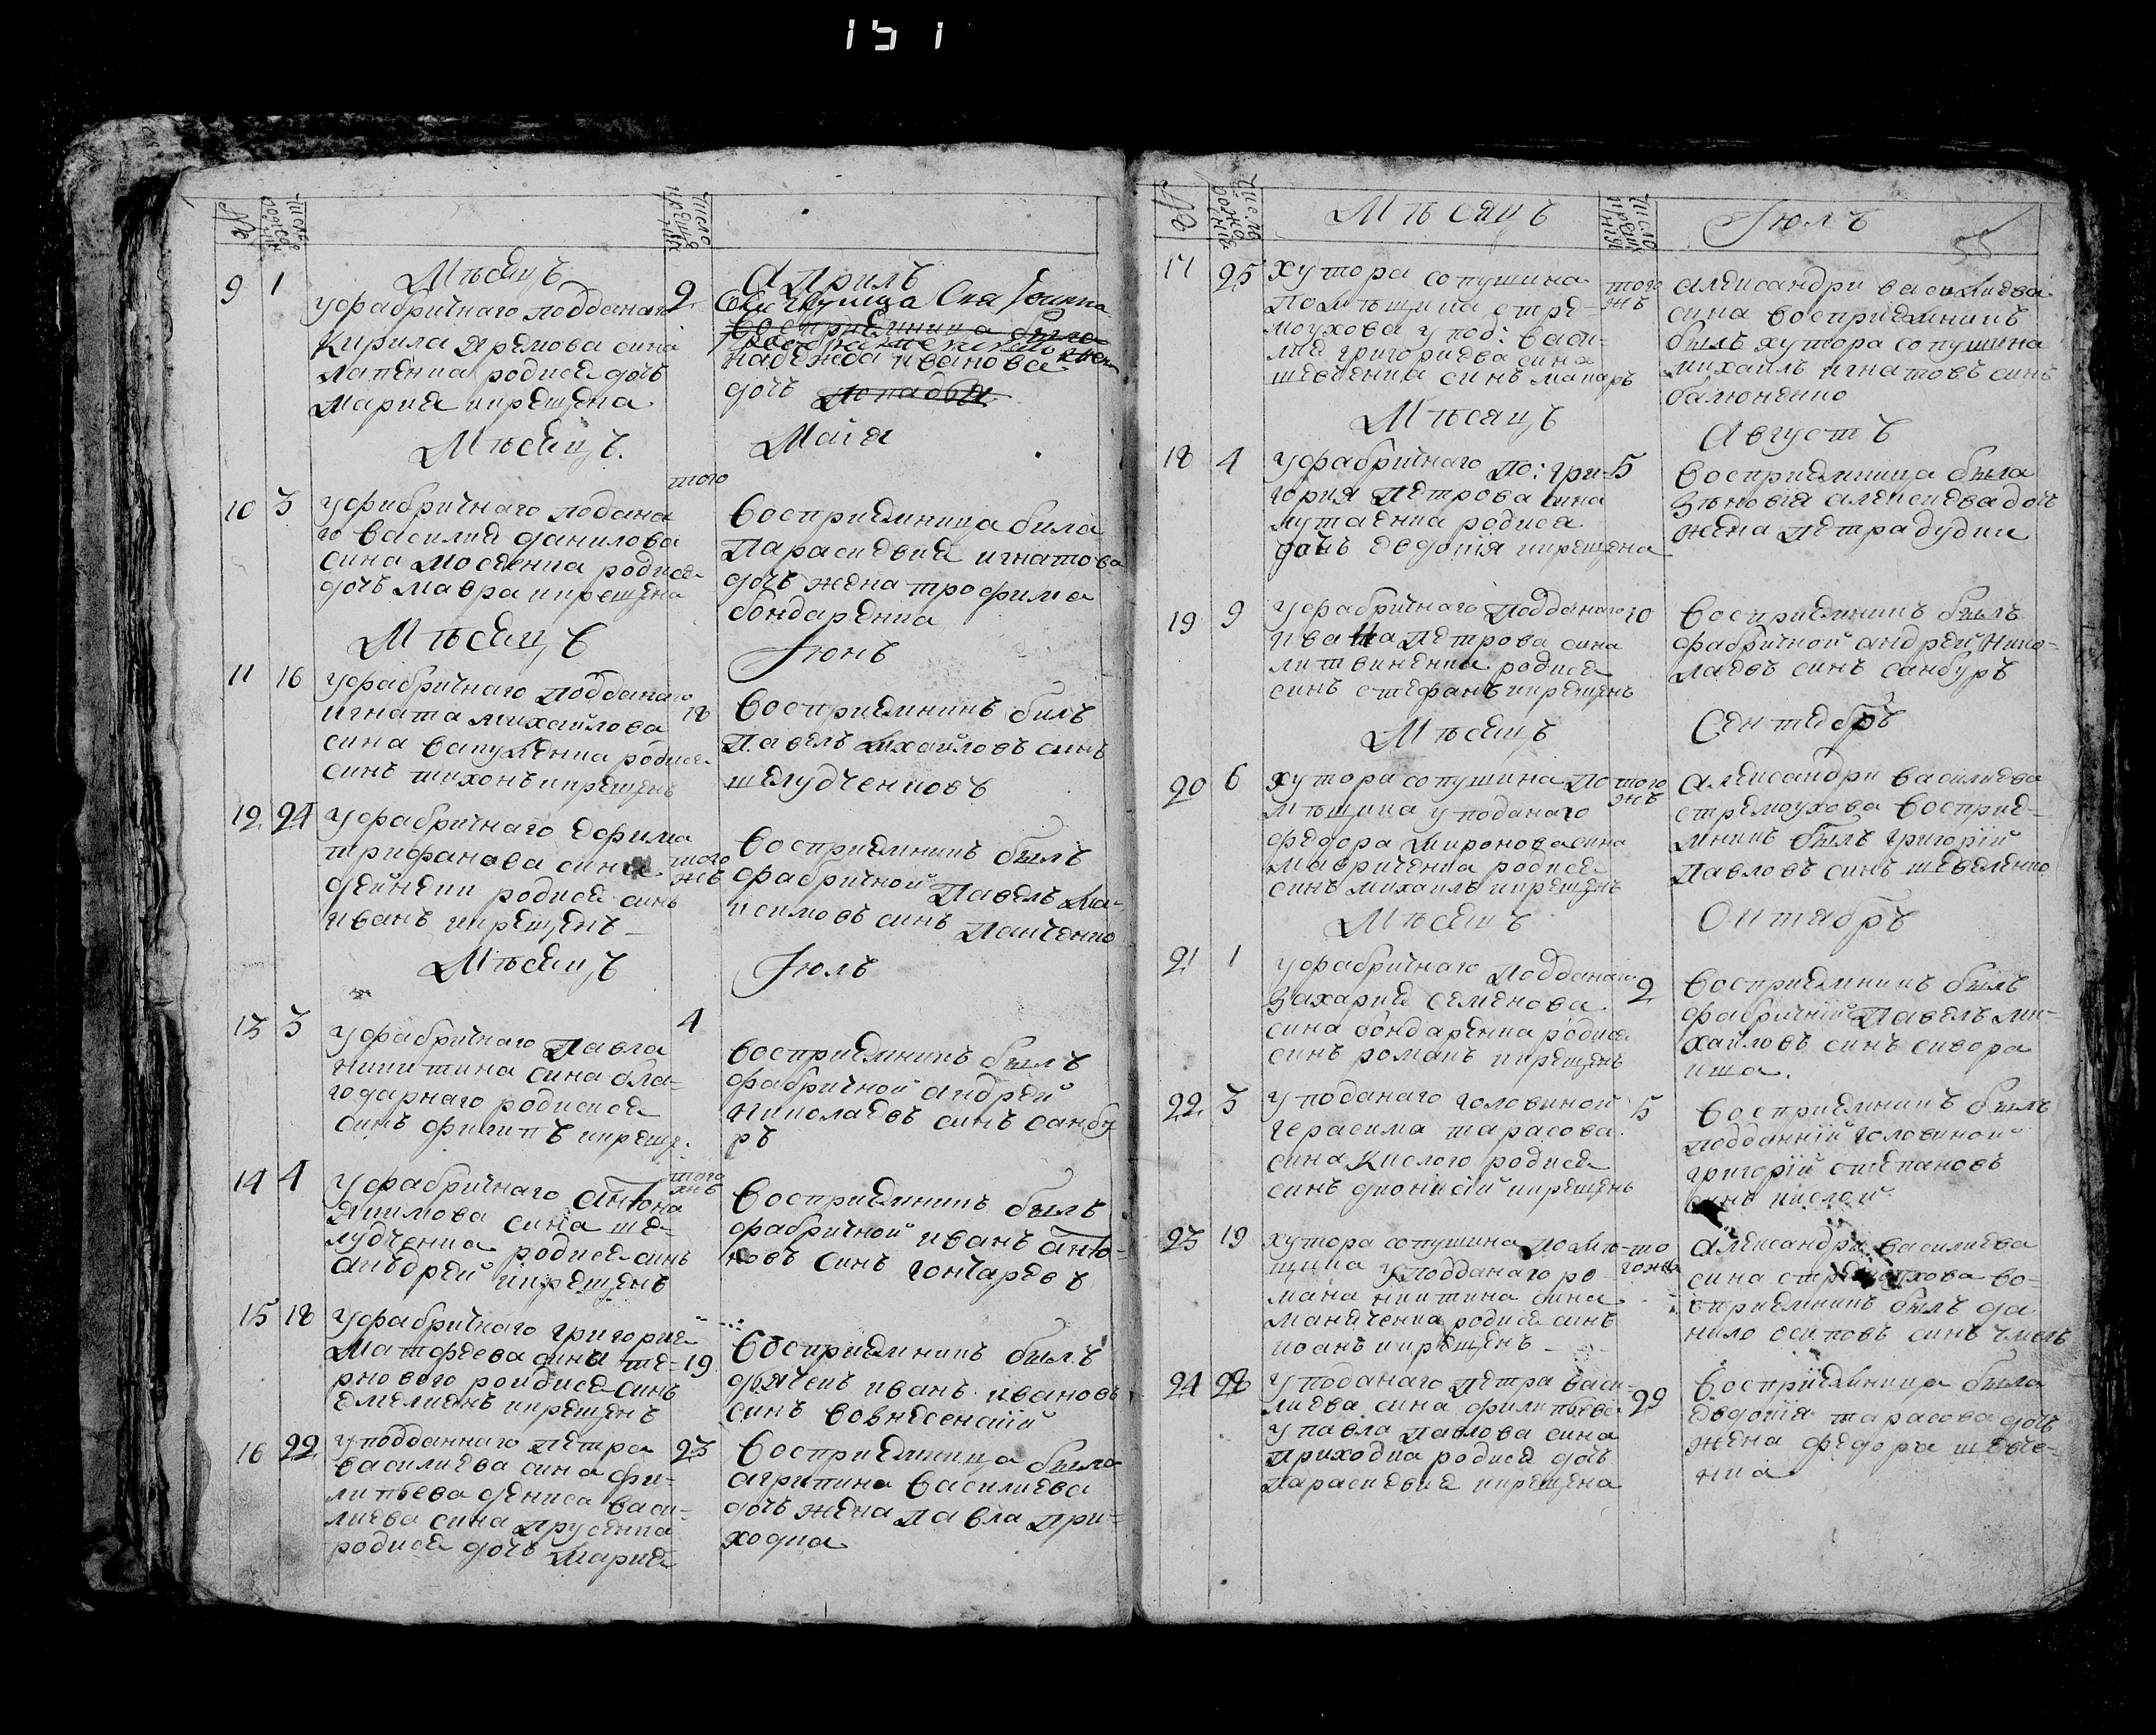 151
№
число рожденія
число крещенія
Мѣсецъ
Априлъ
9
1
уфабричнаго подданаго
Кирила яремова сина
лапенка родися дочъ
Мария крещена
2
надежда иванова
дочъ
Мѣсецъ.
Майя
10
3
уфабричнаго подана
го василия данилова
сина мосеенка родися
дочъ мавра крещена
того
восприемница била
Параскевия игнатова
дочъ жена трофима
бондаренка
Мѣсецъ
Іюнъ
11
16
уфабричнаго подданаго
игната михайлова
сина вакуленка родися
синъ тихонъ крещенъ
18
восприемникъ билъ
Павелъ михайловъ синъ
шелудченковъ
12
24
уфабричнаго ефима
трифанова сина
дейнеки родися синъ
иванъ крещенъ
того жъ
восприемникъ былъ
фабричной Павелъ ма-
ксимовъ синъ Панченко
Мѣсецъ
Іюлъ
13
3
уфабричнаго Павла
никитина сина бла-
годарнаго родися
синъ филипъ креще:
4
восприемникъ былъ
фабричной андрей
николаевъ синъ санбу
ръ
14
4
уфабричнаго Антона
якимова сина ше-
лудченка родися синъ
аньдрей крещенъ
того жъ
восприемникъ былъ
фабричной иванъ анто-
новъ синъ гончаревъ
15
18
уфабричнаго григория
матфеева сина те-
рнового роидися синъ
емелиянъ крещенъ
19
восприемникъ былъ
дячекъ иванъ ивановъ
синъ вовнесенский
16
22
уподданнаго петра
василиева сина фи-
липьева дениса васи-
лиева сина Прусенка
родися дочъ мария
23
восприемница была
агрипина василиева
дочъ жена павла при-
ходка
№
число рожденія
Мѣсяцъ
число крещенія
Іюлъ
17
25
хутора сопушина
помѣщика стре-
моухова у под: васи-
лия григориева сина
шевченка синъ макаръ
того жъ
александри василиева
сина восприемникъ
былъ хутора сопушина
михаилъ игнатовъ синъ
балюненко
Мѣсяцъ
Августъ
18
4
уфабричнаго по: гри-
гория петрова сина
лутаенка родися
дочъ евдокія крещена
5
восприемница была
зѣновія алексиева дочъ
жена петра дудки
19
9
уфабричнаго подданаго
ивана петрова сина
литвиненка родися
синъ стефанъ крещенъ
10
восприемникъ былъ
фабричной андрей нико-
лаевъ синъ санбуръ
Мѣсецъ
Сентебръ
20
6
хутора сопушина по
мѣщика у поданаго
федора миронова сина
мавриченка родися
синъ михаилъ крещенъ
того жъ
александри василиева
стремоухова восприе-
мникъ былъ григорій
павловъ синъ шевеленко
Мѣсецъ
Октябръ
21
1
уфабричнаго подданаго
захария семенова
сина бондаренка родися
синъ романъ крещенъ
2
восприемникъ былъ
фабричній павелъ ми-
хайловъ синъ сивора
кша.
22
3
у поданаго головиной
герасима тарасова
сина кислого родися
синъ дионисій крещенъ
5
восприемникъ былъ
подданній головиной
григорій степановъ
синъ кислой
23
19
хутора сопушина помѣ-
щика у подданаго ро-
мана никитина сина
маниченка родися синъ
иоанъ крещенъ
того жъ
александри василиева
сина стремоухова во-
сприемникъ былъ да
нило осиповъ синъ чмель
24
28
у поданаго петра васи-
лиева сина филипьева
у павла павлова сина
приходка родися дочъ
параскевия крещена
29
восприемница была
евдокія тарасова дочъ
жена федора шевче-
нка